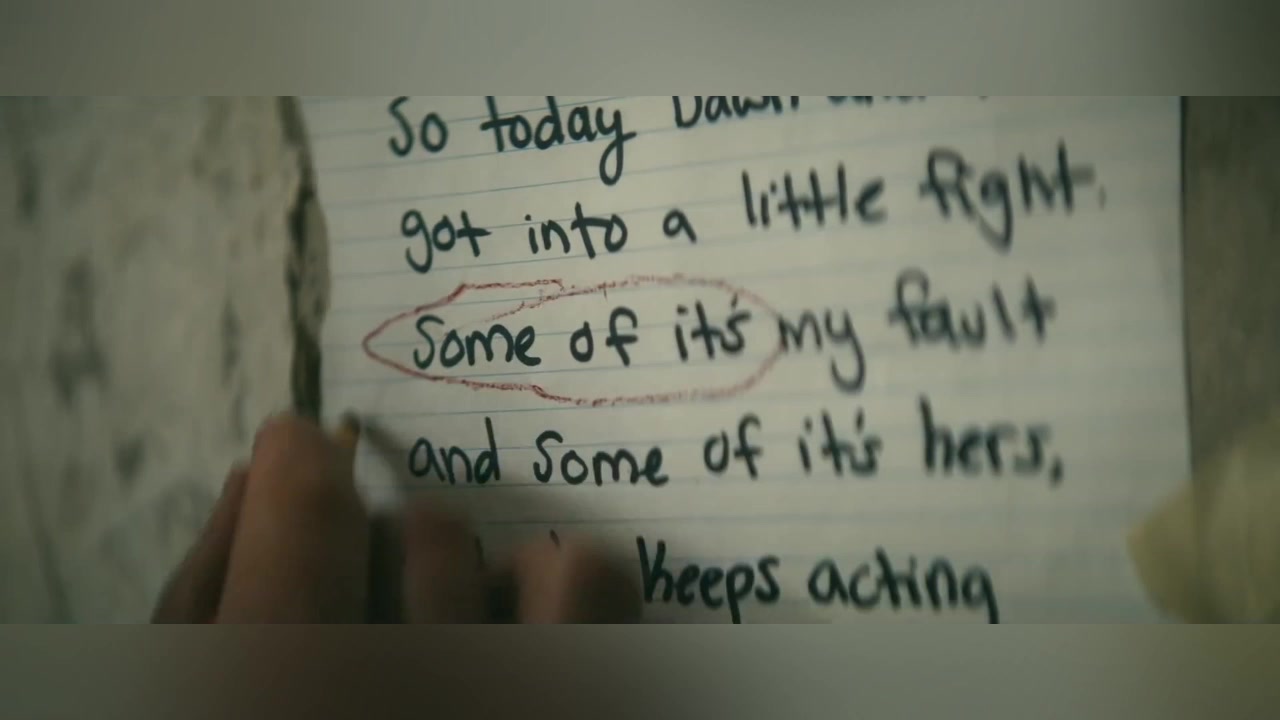 So today Dawn and
got into a little fight.
Some of it's my fault
and some of it's hers,
keeps acting